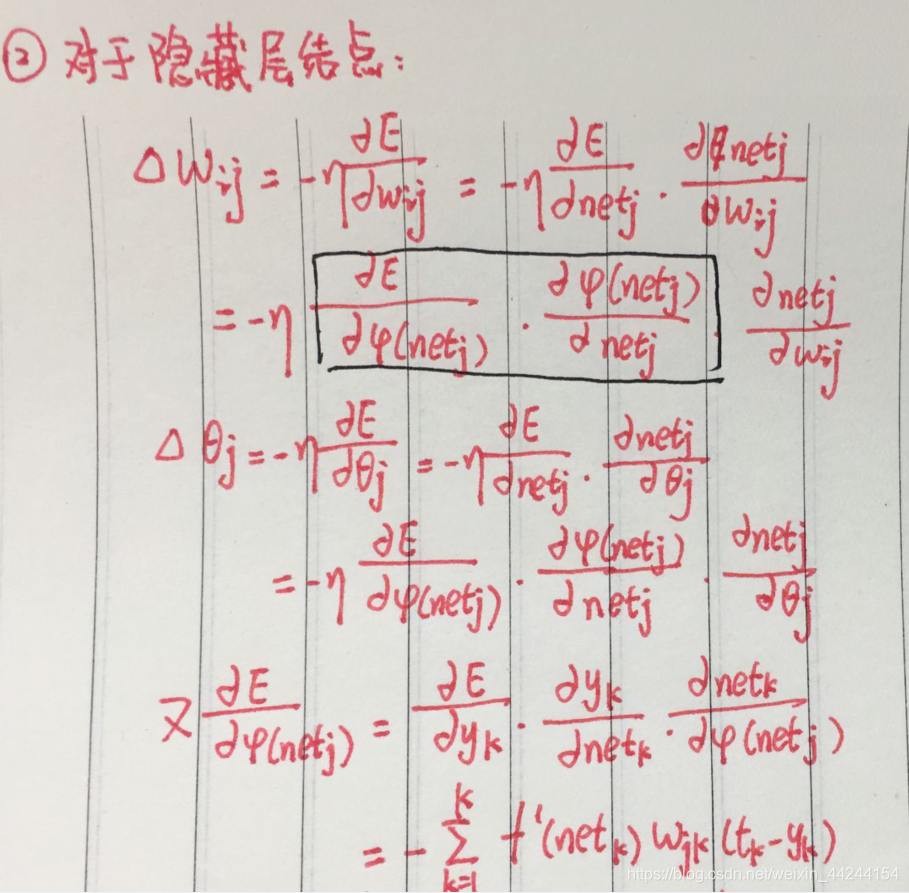 ② 对于隐藏层结点:
Δw_ij = -η ∂E/∂w_ij = -η ∂E/∂net_j · ∂net_j/∂w_ij
= -η ∂E/∂φ(net_j) · ∂φ(net_j)/∂net_j · ∂net_j/∂w_ij
Δθ_j = -η ∂E/∂θ_j = -η ∂E/∂net_j · ∂net_j/∂θ_j
= -η ∂E/∂φ(net_j) · ∂φ(net_j)/∂net_j · ∂net_j/∂θ_j
又 ∂E/∂φ(net_j) = ∂E/∂y_k · ∂y_k/∂net_k · ∂net_k/∂φ(net_j)
= - ∑_{k=1}^{K} f'(net_k) w_jk (t_k - y_k)
https://blog.csdn.net/weixin_44244154